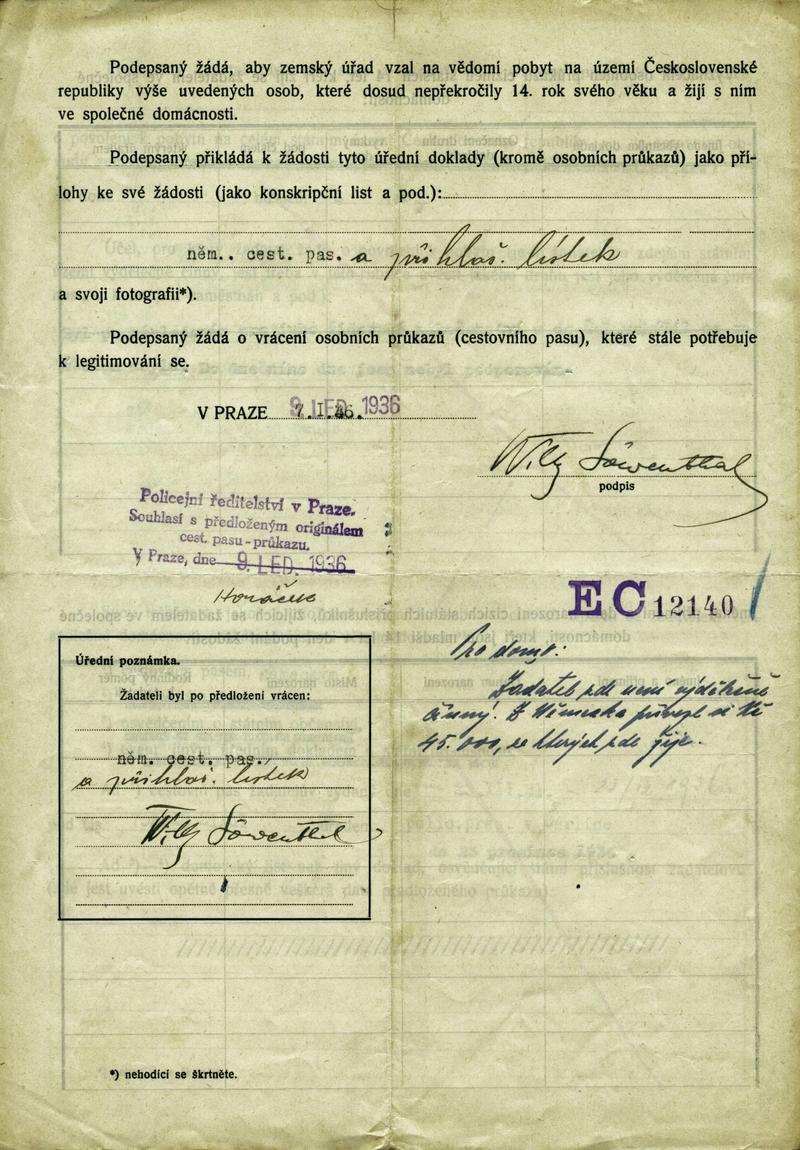 Podepsaný žádá, aby zemský úřad vzal na vědomí pobyt na území Československé
republiky výše uvedených osob, které dosud nepřekročily 14. rok svého věku a žijí s ním
ve společné domácnosti.
Podepsaný přikládá k žádosti tyto úřední doklady (kromě osobních průkazů) jako pří-
lohy ke své žádosti (jako konskripční list a pod.):
něm.. cest. pas. a přihláš. lístek
a svoji fotografii*).
Podepsaný žádá o vrácení osobních průkazů (cestovního pasu), které stále potřebuje
k legitimování se.
V PRAZE 7.I.36. 9 LED. 1936
Willy Löwenthal
podpis
Policejní ředitelství v Praze.
Souhlasí s předloženým originálem
cest. pasu-průkazu.
V Praze, dne 9. LED. 1936
Horáček
EC 12140
Pro domo:
Žadatel zde není výdělečně
činný. Z Německa přivezl si Kč
45.000, ze kterých zde žije.
Úřední poznámka.
Žadateli byl po předložení vrácen:
něm. cest. pas.
a přihláš. lístek
Willy Löwenthal
*) nehodící se škrtněte.